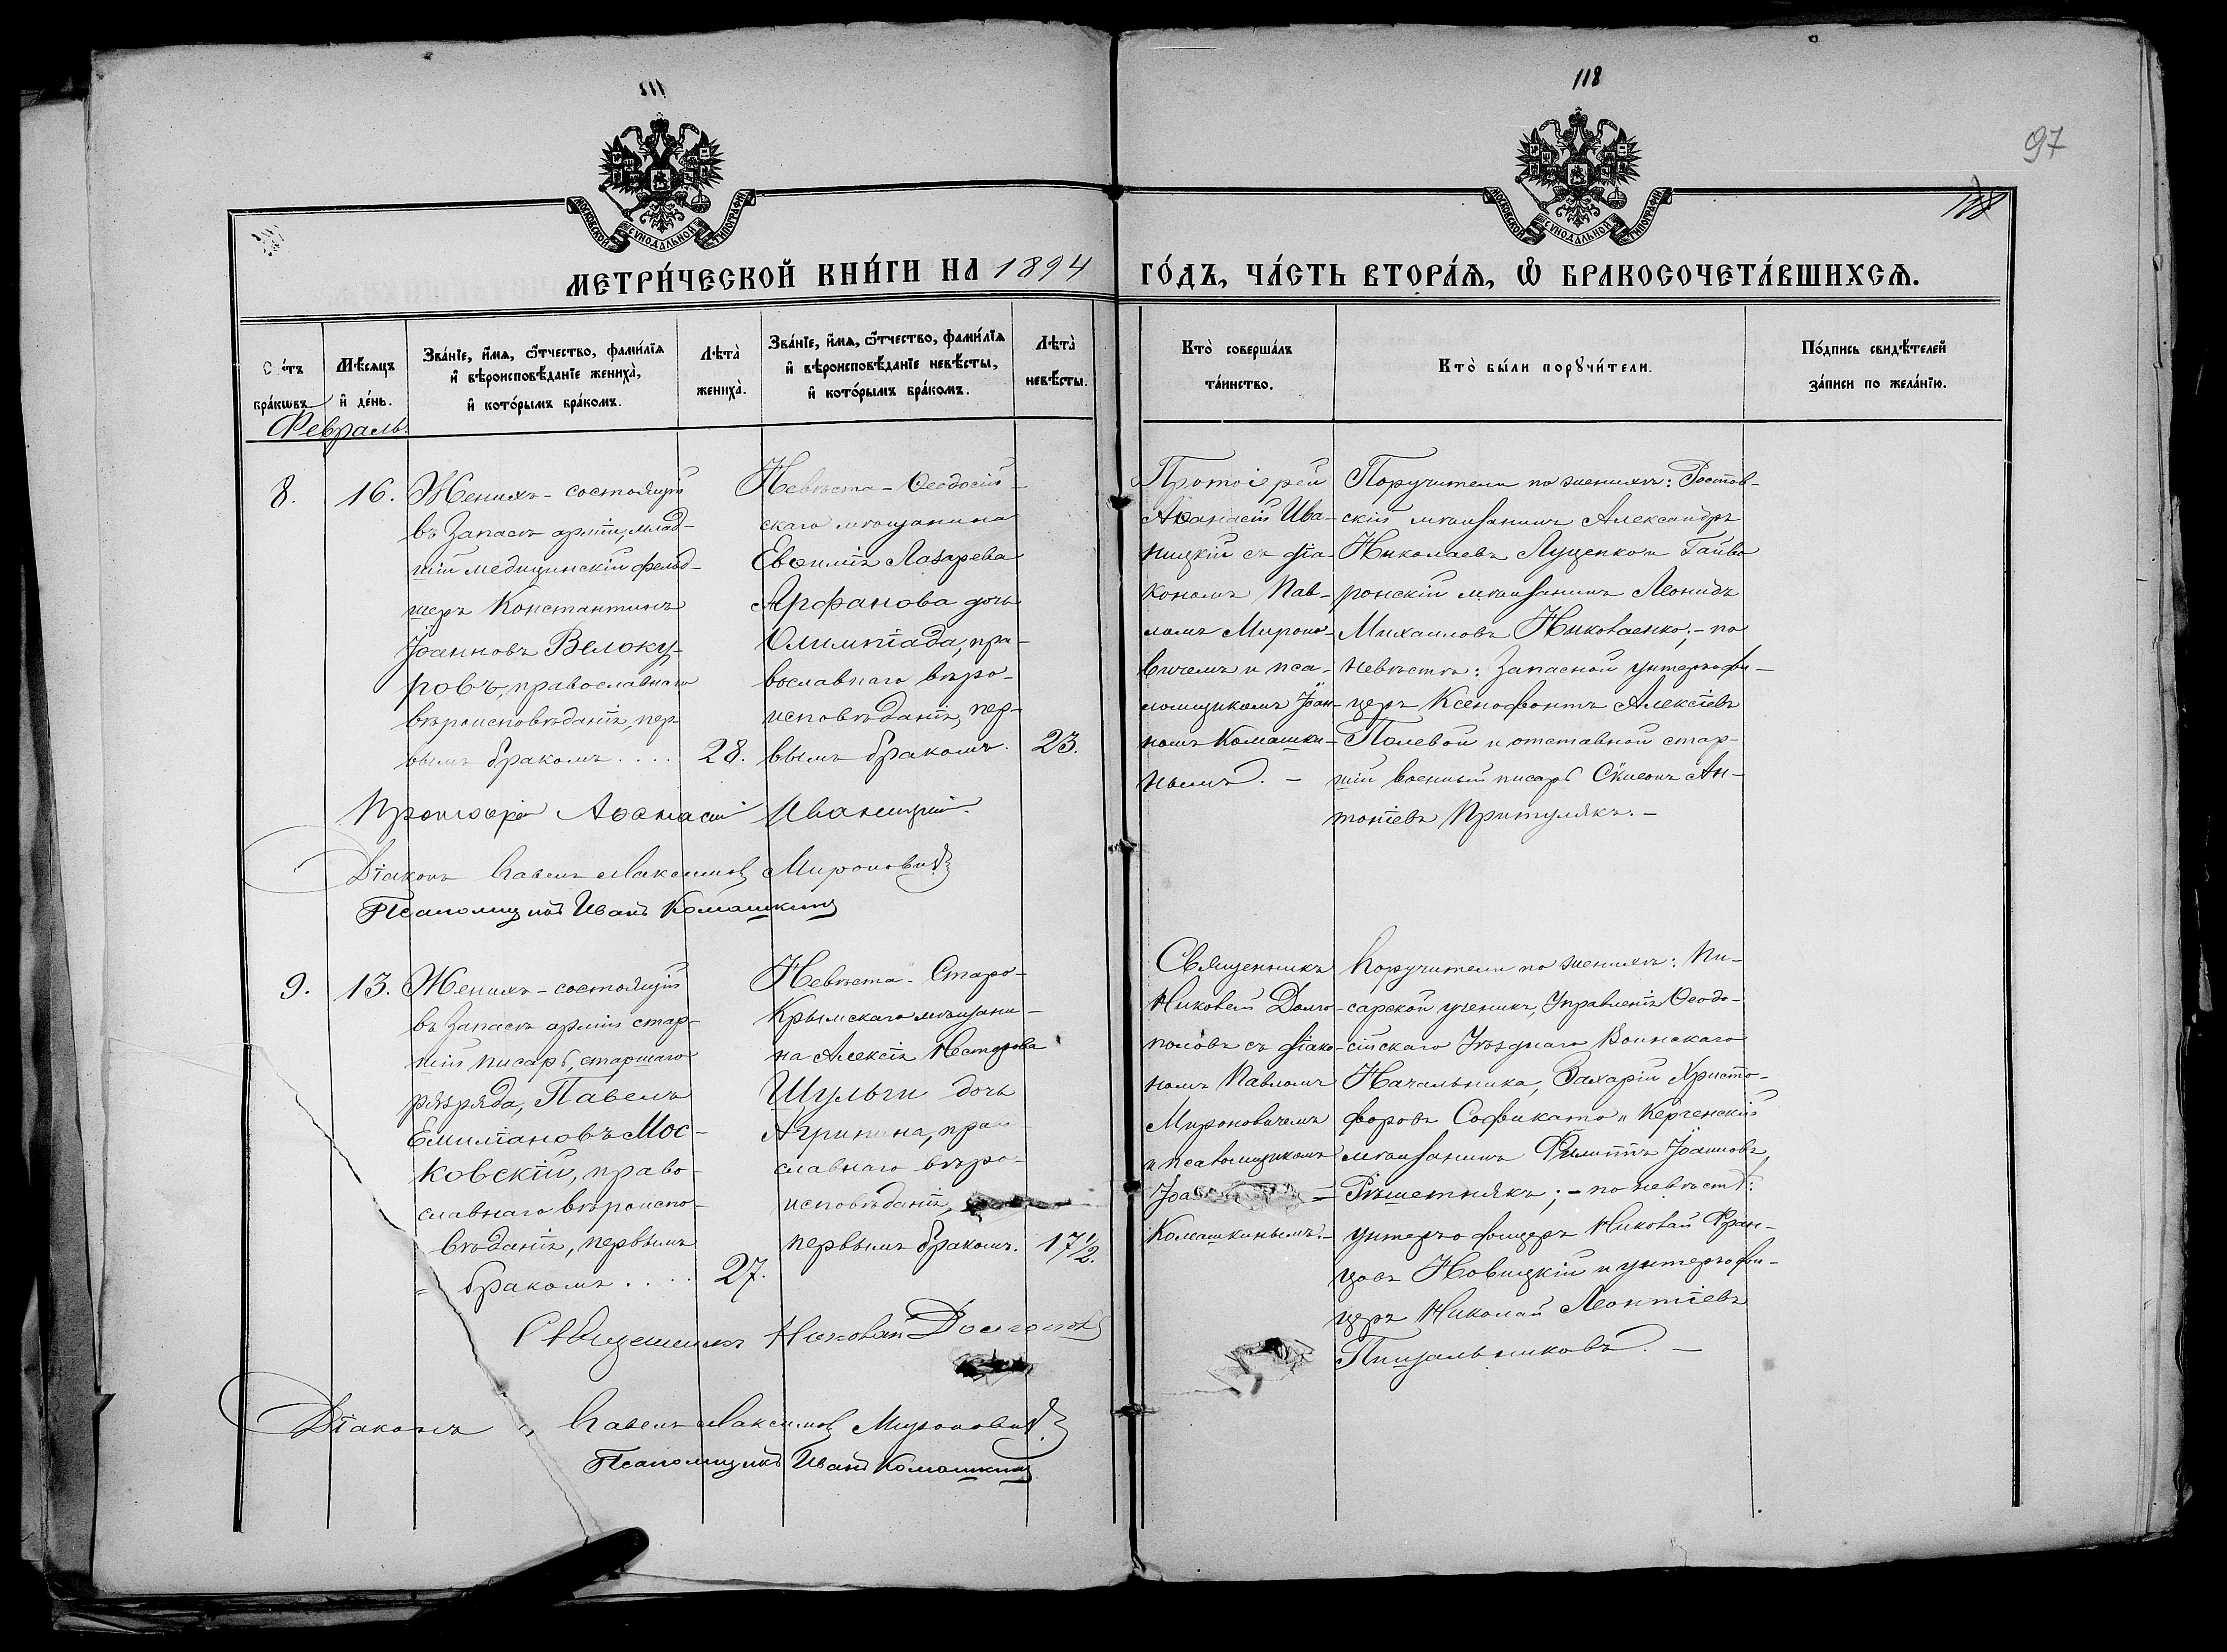 118
97
118
МОСКОВСКОЙ СѴНОДАЛЬНОЙ ТИПОГРАФІИ
МОСКОВСКОЙ СѴНОДАЛЬНОЙ ТИПОГРАФІИ
МЕТРИ́ЧЕСКОЙ КНИ́ГИ НА 1894
ГО́ДЪ, ЧА́СТЬ ВТОРА́Ѧ, Ѡ БРАКОСОЧЕТА́ВШИХСѦ.
Сче́тъ бра́кѡвъ.
Мѣ́сѧцъ и҆ де́нь.
Зва́нїе, и҆́мѧ, ѻ҆́тчество, фами́лїѧ
и҆ вѣроисповѣ́данїе жениха̀,
и҆ кото́рымъ бра́комъ.
Лѣ́та̀
жениха̀.
Зва́нїе, и҆́мѧ, ѻ҆́тчество, фами́лїѧ
и҆ вѣроисповѣ́данїе невѣ́сты,
и҆ кото́рымъ бра́комъ.
Лѣ́та̀
невѣ́сты.
Кто̀ соверша́лъ
та́инство.
Кто̀ бы́ли порꙋчи́тели.
По́дпись свидѣ́телей
за́писи по жела́нїю.
Февраль.
8.
16.
Женихъ - состоящій
въ запасѣ арміи, млад-
шій медицинскій фельд-
шеръ Константинъ
Іоанновъ Велоку-
ровъ, православнаго
вѣроисповѣданія, пер-
вымъ бракомъ . . . .
28.
Невѣста - Ѳеодосій-
скаго мѣщанина
Евѳимія Лазарева
Арфанова дочь
Олимпіада, пра-
вославнаго вѣро-
исповѣданія, пер-
вымъ бракомъ.
23.
Протоіерей
Аѳанасій Ива-
ницкій съ діа-
кономъ Пав-
ломъ Мироно-
вичемъ и пса-
ломщикомъ Іоан-
номъ Комашки-
нымъ. -
Поручители по женихѣ: Ростов-
скій мѣщанинъ Александръ
Николаевъ Луценко и Гайво
ронскій мѣщанинъ Леонидъ
Михаиловъ Николаенко; - по
невѣстѣ: Запасной унтеръ-офи-
церъ Ксенофонтъ Алексіевъ
Полевой и отставной стар-
шій военный писарь Сѵмеонъ Ан-
тоніевъ Притулякъ. -
Протоіерей Аѳанасій Иваницкій.
Діаконъ Павелъ Максимов Миронович
Псаломщикъ Иванъ Комашкинъ
9.
13.
Женихъ - состоящій
въ запасѣ арміи стар-
шій писарь, старшаго
разряда, Павелъ
Емиліановъ Мос-
ковскій, право-
славнаго вѣроиспо-
вѣданія, первымъ
= бракомъ . . . .
27.
Невѣста - Старо-
Крымскаго мѣщани-
на Алексія Нестерова
Шульги дочь
Агрипина, прав
славнаго вѣро-
исповѣданія,
первымъ бракомъ.
17½.
Священникъ
Николай Долго-
половъ съ діако-
номъ Павломъ
Мироновичемъ
и псаломщикомъ
Іоа =
Комашкинымъ. -
Поручители по женихѣ: Пи-
сарской ученикъ, Управленія Ѳеодо-
сійскаго Уѣзднаго Воинскаго
Начальника, Захарій Христо-
форовъ Софикато и Керченскій
мѣщанинъ Филиппъ Іоанновъ
Рѣшетнякъ; - по невѣстѣ:
унтеръ офицеръ Николай Фран-
цовъ Новицкій и унтеръ-офи-
церъ Николай Леонтіевъ
Пищальниковъ. -
Священникъ Николай Долгополов
Діаконъ Павелъ Максимов Миронович
Псаломщикъ Иванъ Комашкинъ